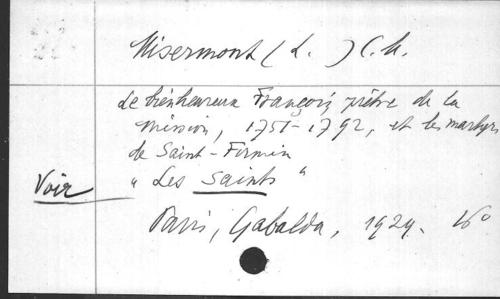 Misermont (L. ) C.M.
Le bienheureux François, prêtre de la
Mission, 1751-1792, et les martyrs
de Saint-Firmin
Voir "Les Saints"
Paris, Gabalda, 1929. 16°